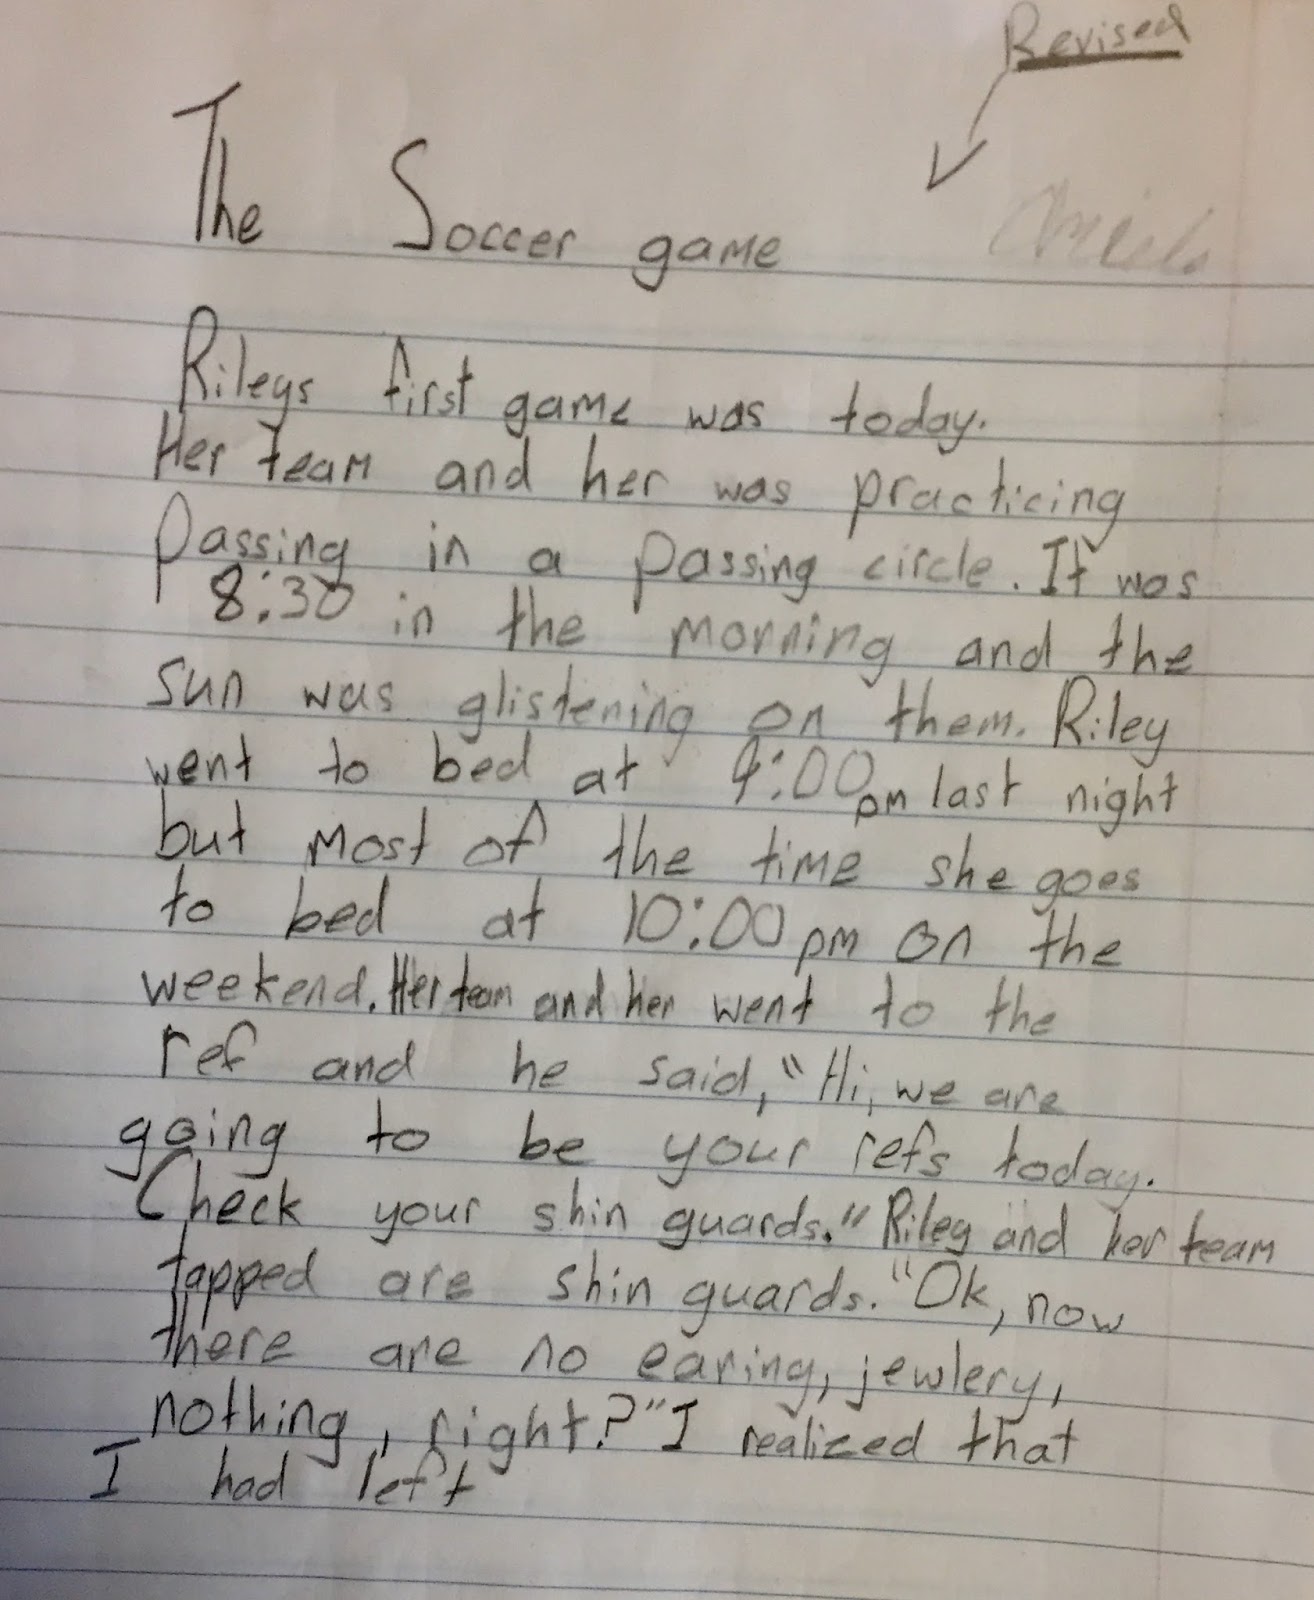 Revised
The Soccer game
Rileys first game was today.
Her team and her was practicing
Passing in a passing circle. It was
8:30 in the morning and the
sun was glistening on them. Riley
went to bed at 9:00pm last night
but most of the time she goes
to bed at 10:00 pm on the
weekend. Her team and her went to the
ref and he said, "Hi, we are
going to be your refs today.
Check your shin guards." Riley and her team
tapped are shin guards. "Ok, now
there are no earing, jewlery,
nothing, right?" I realized that
I had left